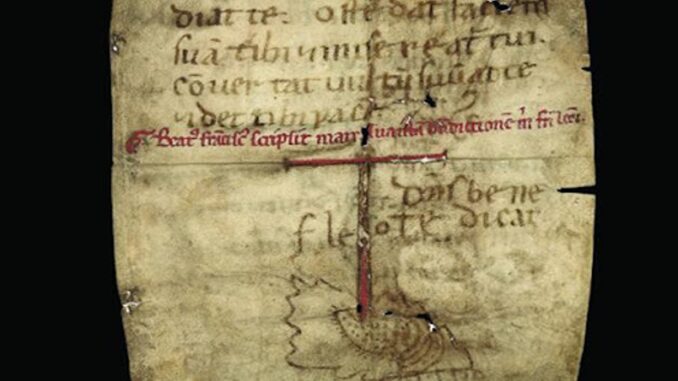 diat te. oste dat faciem
suā tibi ⁊ misereat tui.
cōuertat uultū suū ad te
⁊ det tibi pacē
Beatꝰ franciscꝰ scripsit manu sua istā bn̄dictionē m̄ fr̄i leōi.
dn̄s bene
f leo te dicat